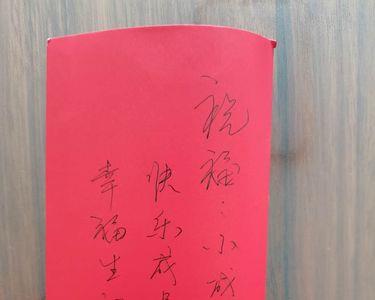 祝福：小成
快乐成
幸福生